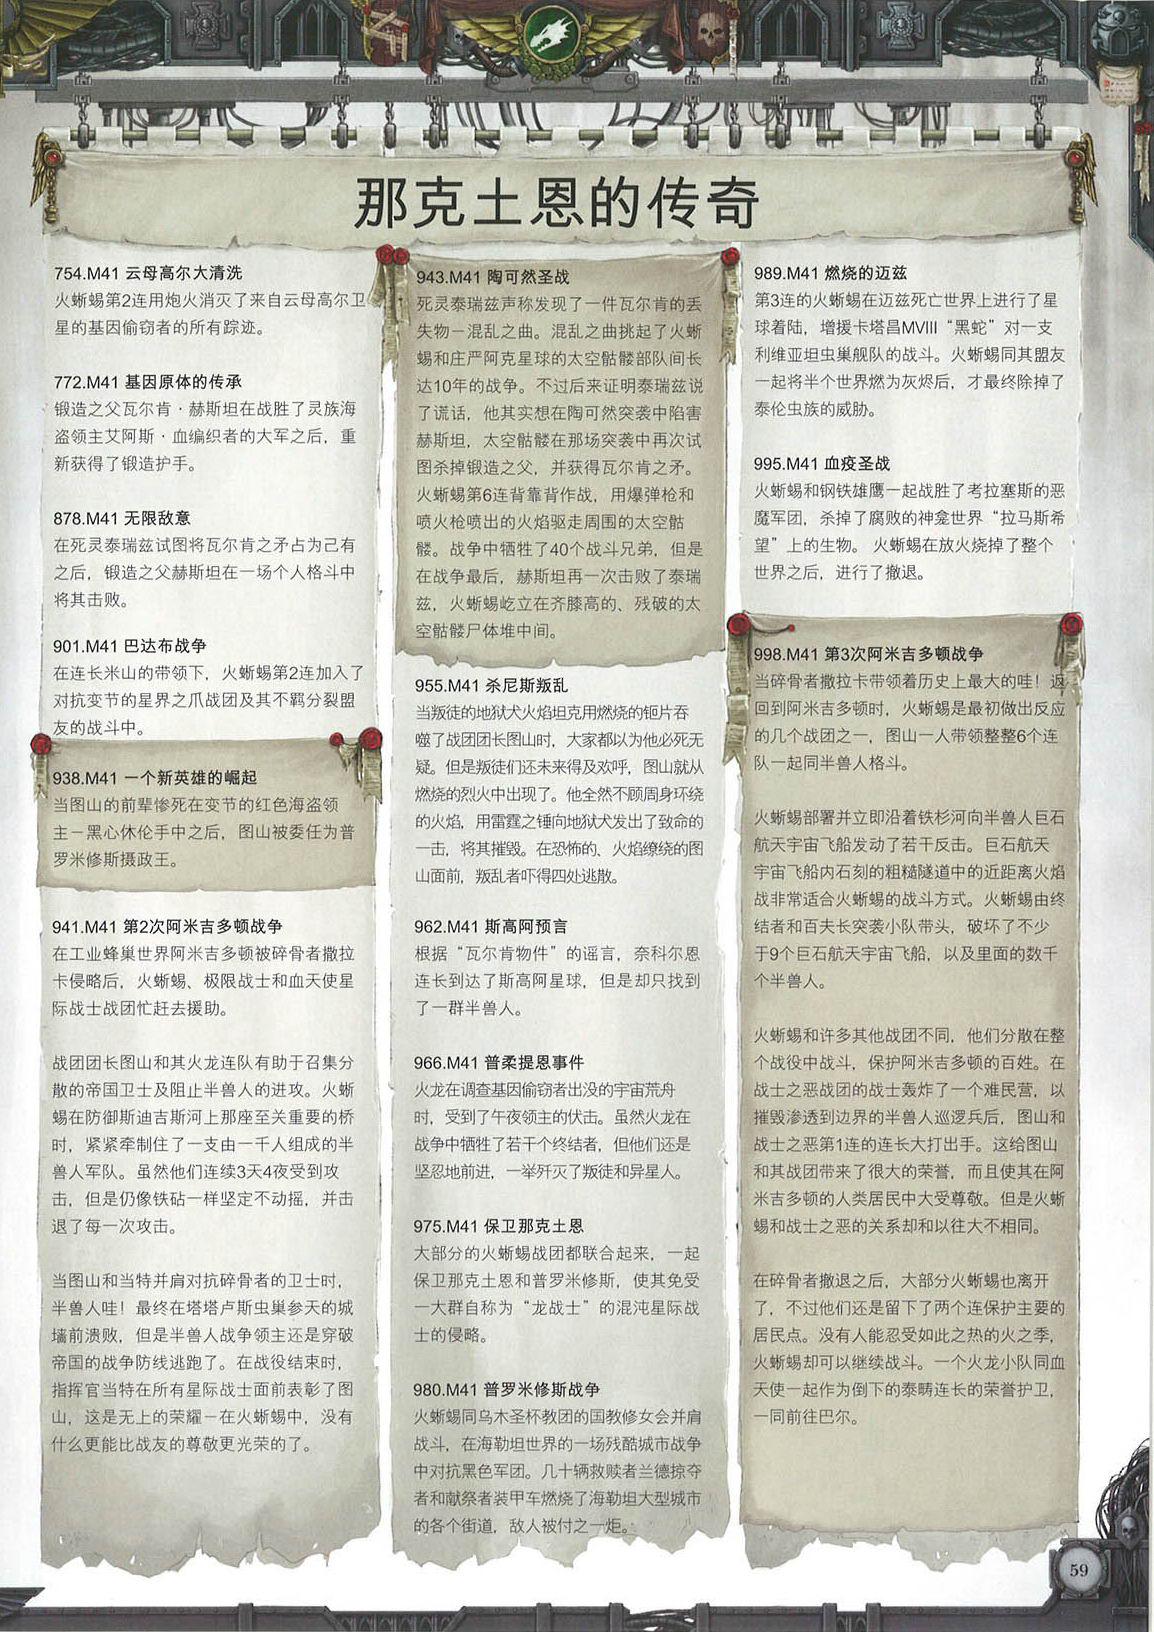 那克土恩的传奇
754.M41 云母高尔大清洗
火蜥蜴第2连用炮火消灭了来自云母高尔卫
星的基因偷窃者的所有踪迹。
772.M41 基因原体的传承
锻造之父瓦尔肯·赫斯坦在战胜了灵族海
盗领主艾阿斯·血编织者的大军之后，重
新获得了锻造护手。
878.M41 无限敌意
在死灵泰瑞兹试图将瓦尔肯之矛占为己有
之后，锻造之父赫斯坦在一场个人格斗中
将其击败。
901.M41 巴达布战争
在连长米山的带领下，火蜥蜴第2连加入了
对抗变节的星界之爪战团及其不羁分裂盟
友的战斗中。
938.M41 一个新英雄的崛起
当图山的前辈惨死在变节的红色海盗领
主－黑心休伦手中之后，图山被委任为普
罗米修斯摄政王。
941.M41 第2次阿米吉多顿战争
在工业蜂巢世界阿米吉多顿被碎骨者撒拉
卡侵略后，火蜥蜴、极限战士和血天使星
际战士战团忙赶去援助。
战团团长图山和其火龙连队有助于召集分
散的帝国卫士及阻止半兽人的进攻。火蜥
蜴在防御斯迪吉斯河上那座至关重要的桥
时，紧紧牵制住了一支由一千人组成的半
兽人军队。虽然他们连续3天4夜受到攻
击，但是仍像铁砧一样坚定不动摇，并击
退了每一次攻击。
当图山和当特并肩对抗碎骨者的卫士时，
半兽人哇！最终在塔塔卢斯虫巢参天的城
墙前溃败，但是半兽人战争领主还是穿破
帝国的战争防线逃跑了。在战役结束时，
指挥官当特在所有星际战士面前表彰了图
山，这是无上的荣耀－在火蜥蜴中，没有
什么更能比战友的尊敬更光荣的了。
943.M41 陶可然圣战
死灵泰瑞兹声称发现了一件瓦尔肯的丢
失物－混乱之曲。混乱之曲挑起了火蜥
蜴和庄严阿克星球的太空骷髅部队间长
达10年的战争。不过后来证明泰瑞兹说
了谎话，他其实想在陶可然突袭中陷害
赫斯坦，太空骷髅在那场突袭中再次试
图杀掉锻造之父，并获得瓦尔肯之矛。
火蜥蜴第6连背靠背作战，用爆弹枪和
喷火枪喷出的火焰驱走周围的太空骷
髅。战争中牺牲了40个战斗兄弟，但是
在战争最后，赫斯坦再一次击败了泰瑞
兹，火蜥蜴屹立在齐膝高的、残破的太
空骷髅尸体堆中间。
955.M41 杀尼斯叛乱
当叛徒的地狱犬火焰坦克用燃烧的钷片吞
噬了战团团长图山时，大家都以为他必死无
疑。但是叛徒们还未来得及欢呼，图山就从
燃烧的烈火中出现了。他全然不顾周身环绕
的火焰，用雷霆之锤向地狱犬发出了致命的
一击，将其摧毁。在恐怖的、火焰缭绕的图
山面前，叛乱者吓得四处逃散。
962.M41 斯高阿预言
根据“瓦尔肯物件”的谣言，奈科尔恩
连长到达了斯高阿星球，但是却只找到
了一群半兽人。
966.M41 普柔提恩事件
火龙在调查基因偷窃者出没的宇宙荒舟
时，受到了午夜领主的伏击。虽然火龙在
战争中牺牲了若干个终结者，但他们还是
坚忍地前进，一举歼灭了叛徒和异星人。
975.M41 保卫那克土恩
大部分的火蜥蜴战团都联合起来，一起
保卫那克土恩和普罗米修斯，使其免受
一大群自称为“龙战士”的混沌星际战
士的侵略。
980.M41 普罗米修斯战争
火蜥蜴同乌木圣杯教团的国教修女会并肩
战斗，在海勒坦世界的一场残酷城市战争
中对抗黑色军团。几十辆救赎者兰德掠夺
者和献祭者装甲车燃烧了海勒坦大型城市
的各个街道，敌人被付之一炬。
989.M41 燃烧的迈兹
第3连的火蜥蜴在迈兹死亡世界上进行了星
球着陆，增援卡塔昌MVIII“黑蛇”对一支
利维亚坦虫巢舰队的战斗。火蜥蜴同其盟友
一起将半个世界燃为灰烬后，才最终除掉了
泰伦虫族的威胁。
995.M41 血疫圣战
火蜥蜴和钢铁雄鹰一起战胜了考拉塞斯的恶
魔军团，杀掉了腐败的神龛世界“拉马斯希
望”上的生物。 火蜥蜴在放火烧掉了整个
世界之后，进行了撤退。
998.M41 第3次阿米吉多顿战争
当碎骨者撒拉卡带领着历史上最大的哇！返
回到阿米吉多顿时，火蜥蜴是最初做出反应
的几个战团之一，图山一人带领整整6个连
队一起同半兽人格斗。
火蜥蜴部署并立即沿着铁杉河向半兽人巨石
航天宇宙飞船发动了若干反击。巨石航天
宇宙飞船内石刻的粗糙隧道中的近距离火焰
战非常适合火蜥蜴的战斗方式。火蜥蜴由终
结者和百夫长突袭小队带头，破坏了不少
于9个巨石航天宇宙飞船，以及里面的数千
个半兽人。
火蜥蜴和许多其他战团不同，他们分散在整
个战役中战斗，保护阿米吉多顿的百姓。在
战士之恶战团的战士轰炸了一个难民营，以
摧毁渗透到边界的半兽人巡逻兵后，图山和
战士之恶第1连的连长大打出手。这给图山
和其战团带来了很大的荣誉，而且使其在阿
米吉多顿的人类居民中大受尊敬。但是火蜥
蜴和战士之恶的关系却和以往大不相同。
在碎骨者撤退之后，大部分火蜥蜴也离开
了，不过他们还是留下了两个连保护主要的
居民点。没有人能忍受如此之热的火之季，
火蜥蜴却可以继续战斗。一个火龙小队同血
天使一起作为倒下的泰畴连长的荣誉护卫，
一同前往巴尔。
59